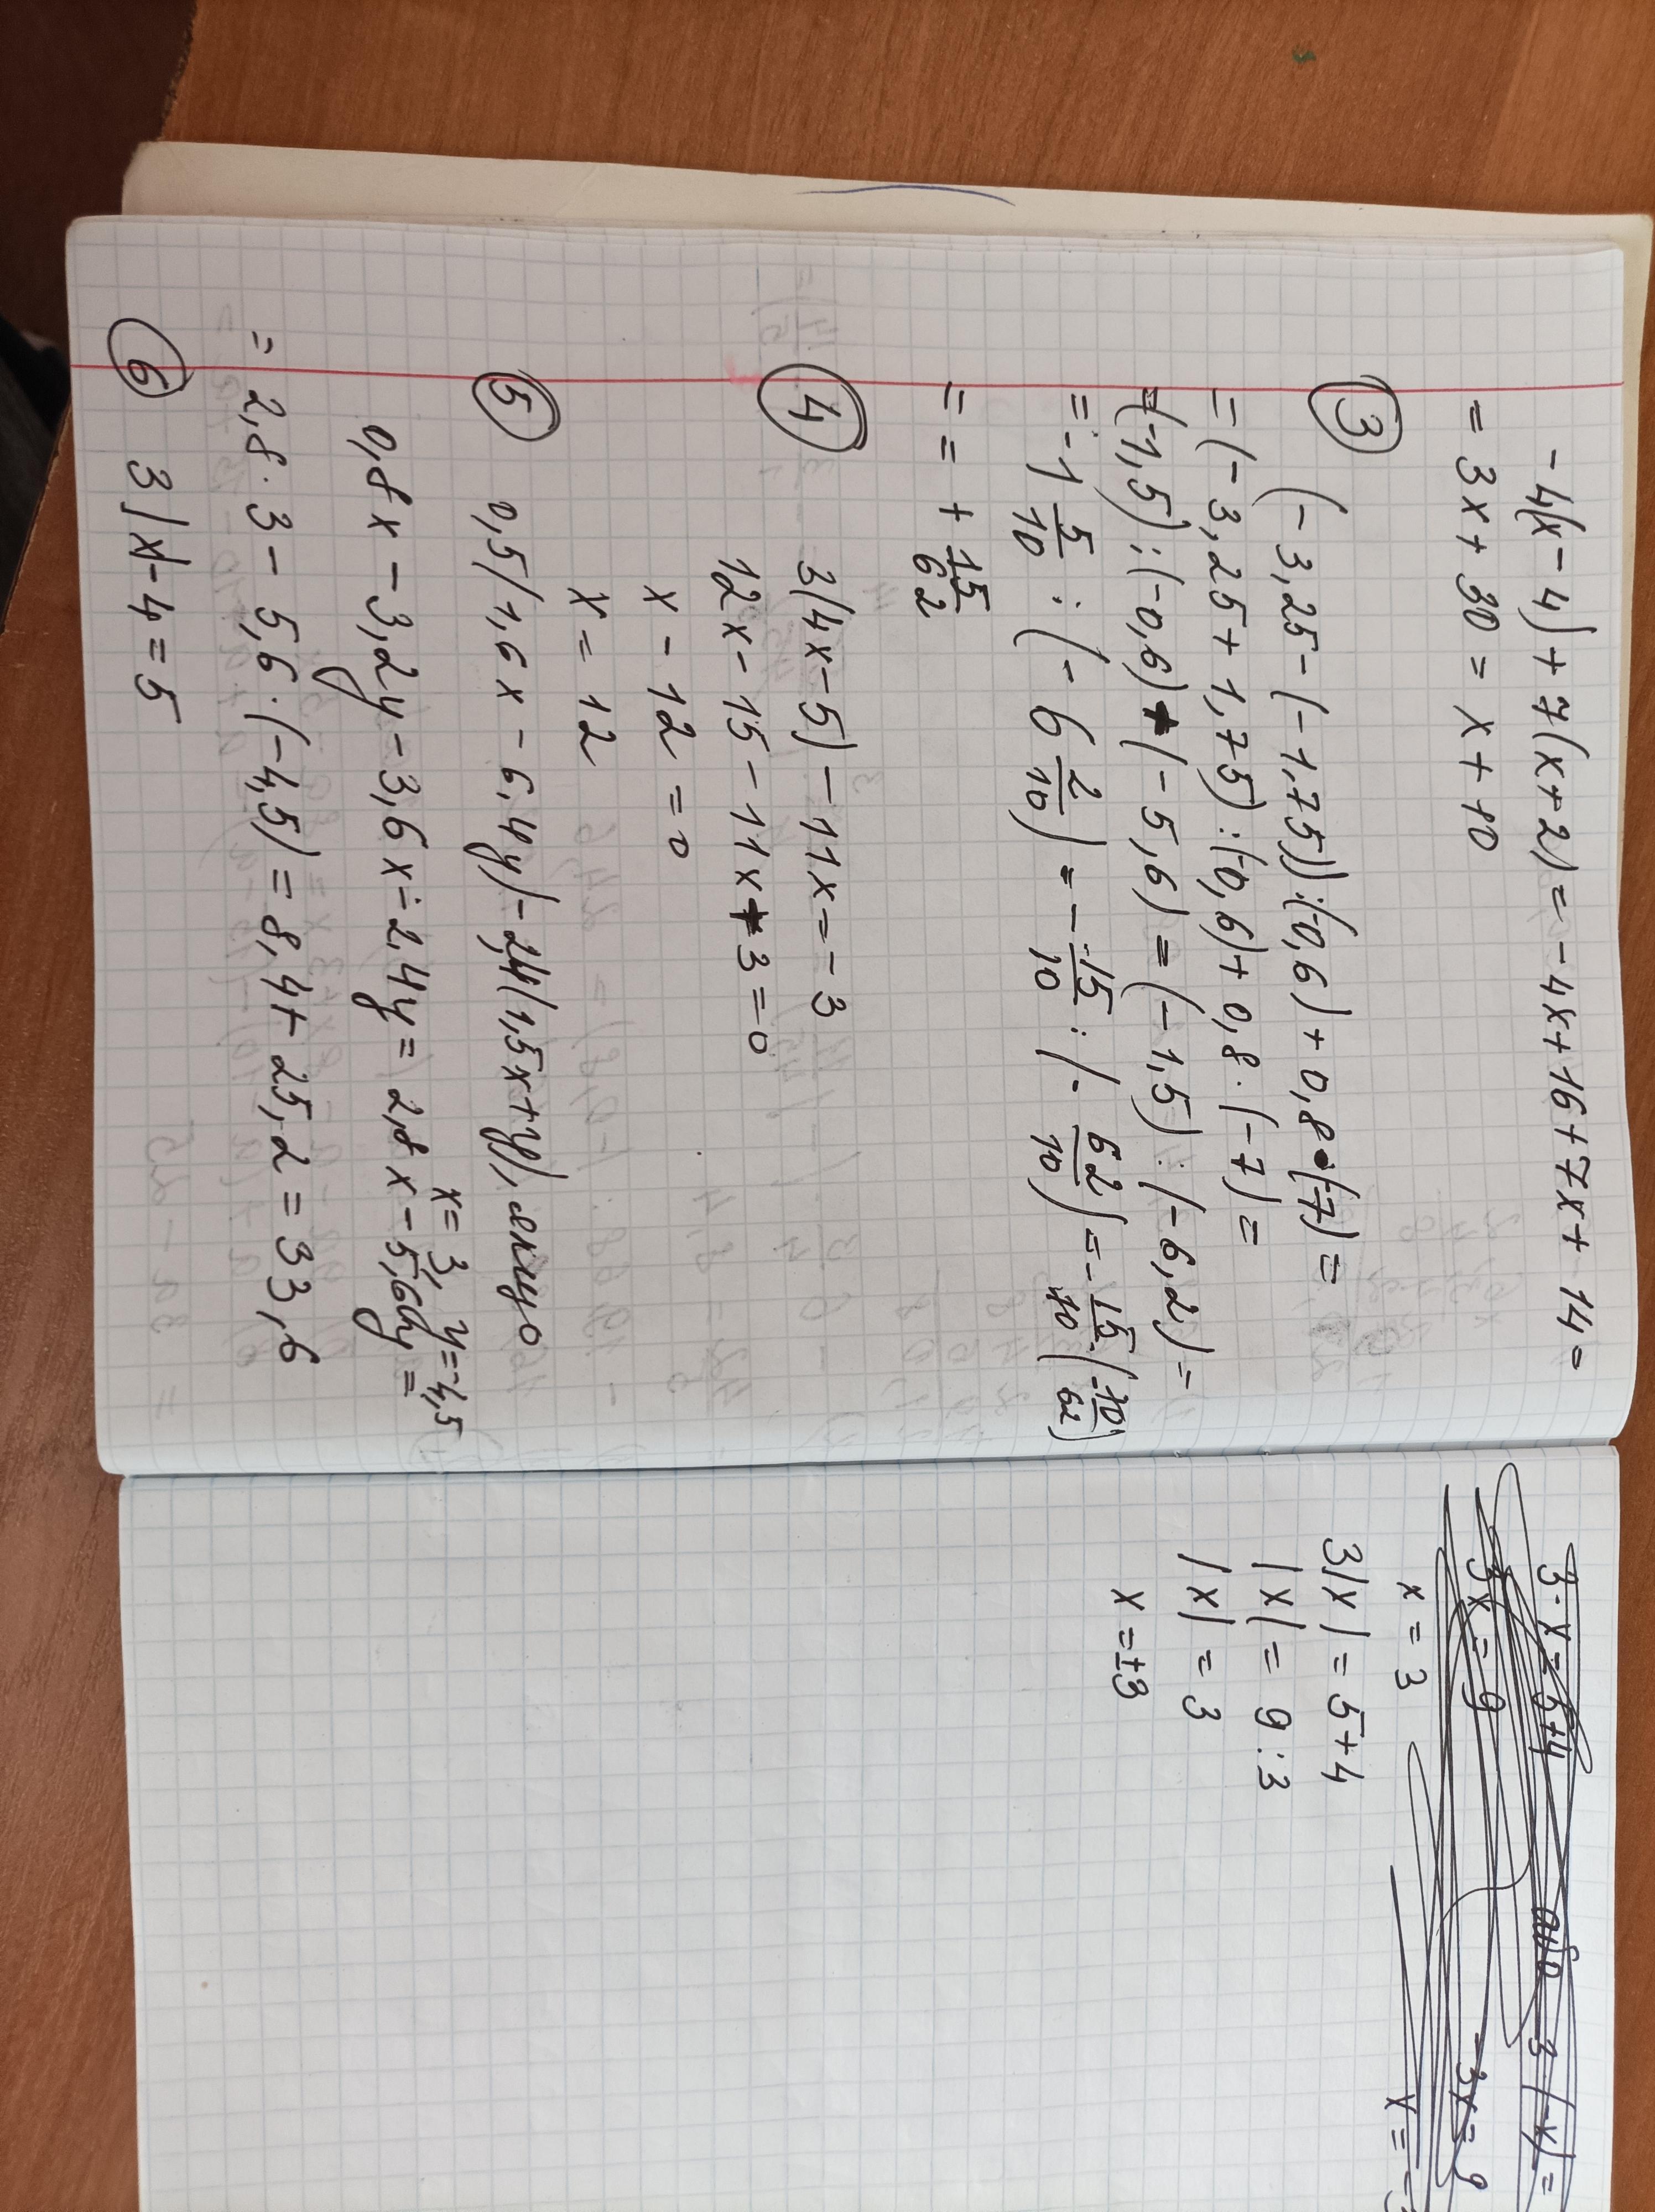 -4(x-4)+7(x+2)=-4x+16+7x+14=
=3x+30=x+10
③ (-3,25-(-1,75)):(-0,6)+0,8·(-7)=
=(-3,25+1,75):(-0,6)+0,8·(-7)=
=(-1,5):(-0,6)+(-5,6)=(-1,5):(-6,2)=
=-1 5/10 : (-6 2/10)=-15/10 : (-62/10)=-15/10·(-10/62)
= = +15/62
④ 3(4x-5)-11x=-3
12x-15-11x+3=0
x-12=0
x=12
⑤ 0,5(1,6x-6,4y)-2,4(1,5x+y), якщо
x=3, y=-4,5
0,8x-3,2y-3,6x-2,4y=2,8x-5,6y=
=2,8·3-5,6·(-4,5)=8,4+25,2=33,6
⑥ 3|x|-4=5
3·x=5+4 або 3·(-x)=
3x=9 -3x=9
x=3 x=-3
3|x|=5+4
|x|=9:3
|x|=3
x=±3